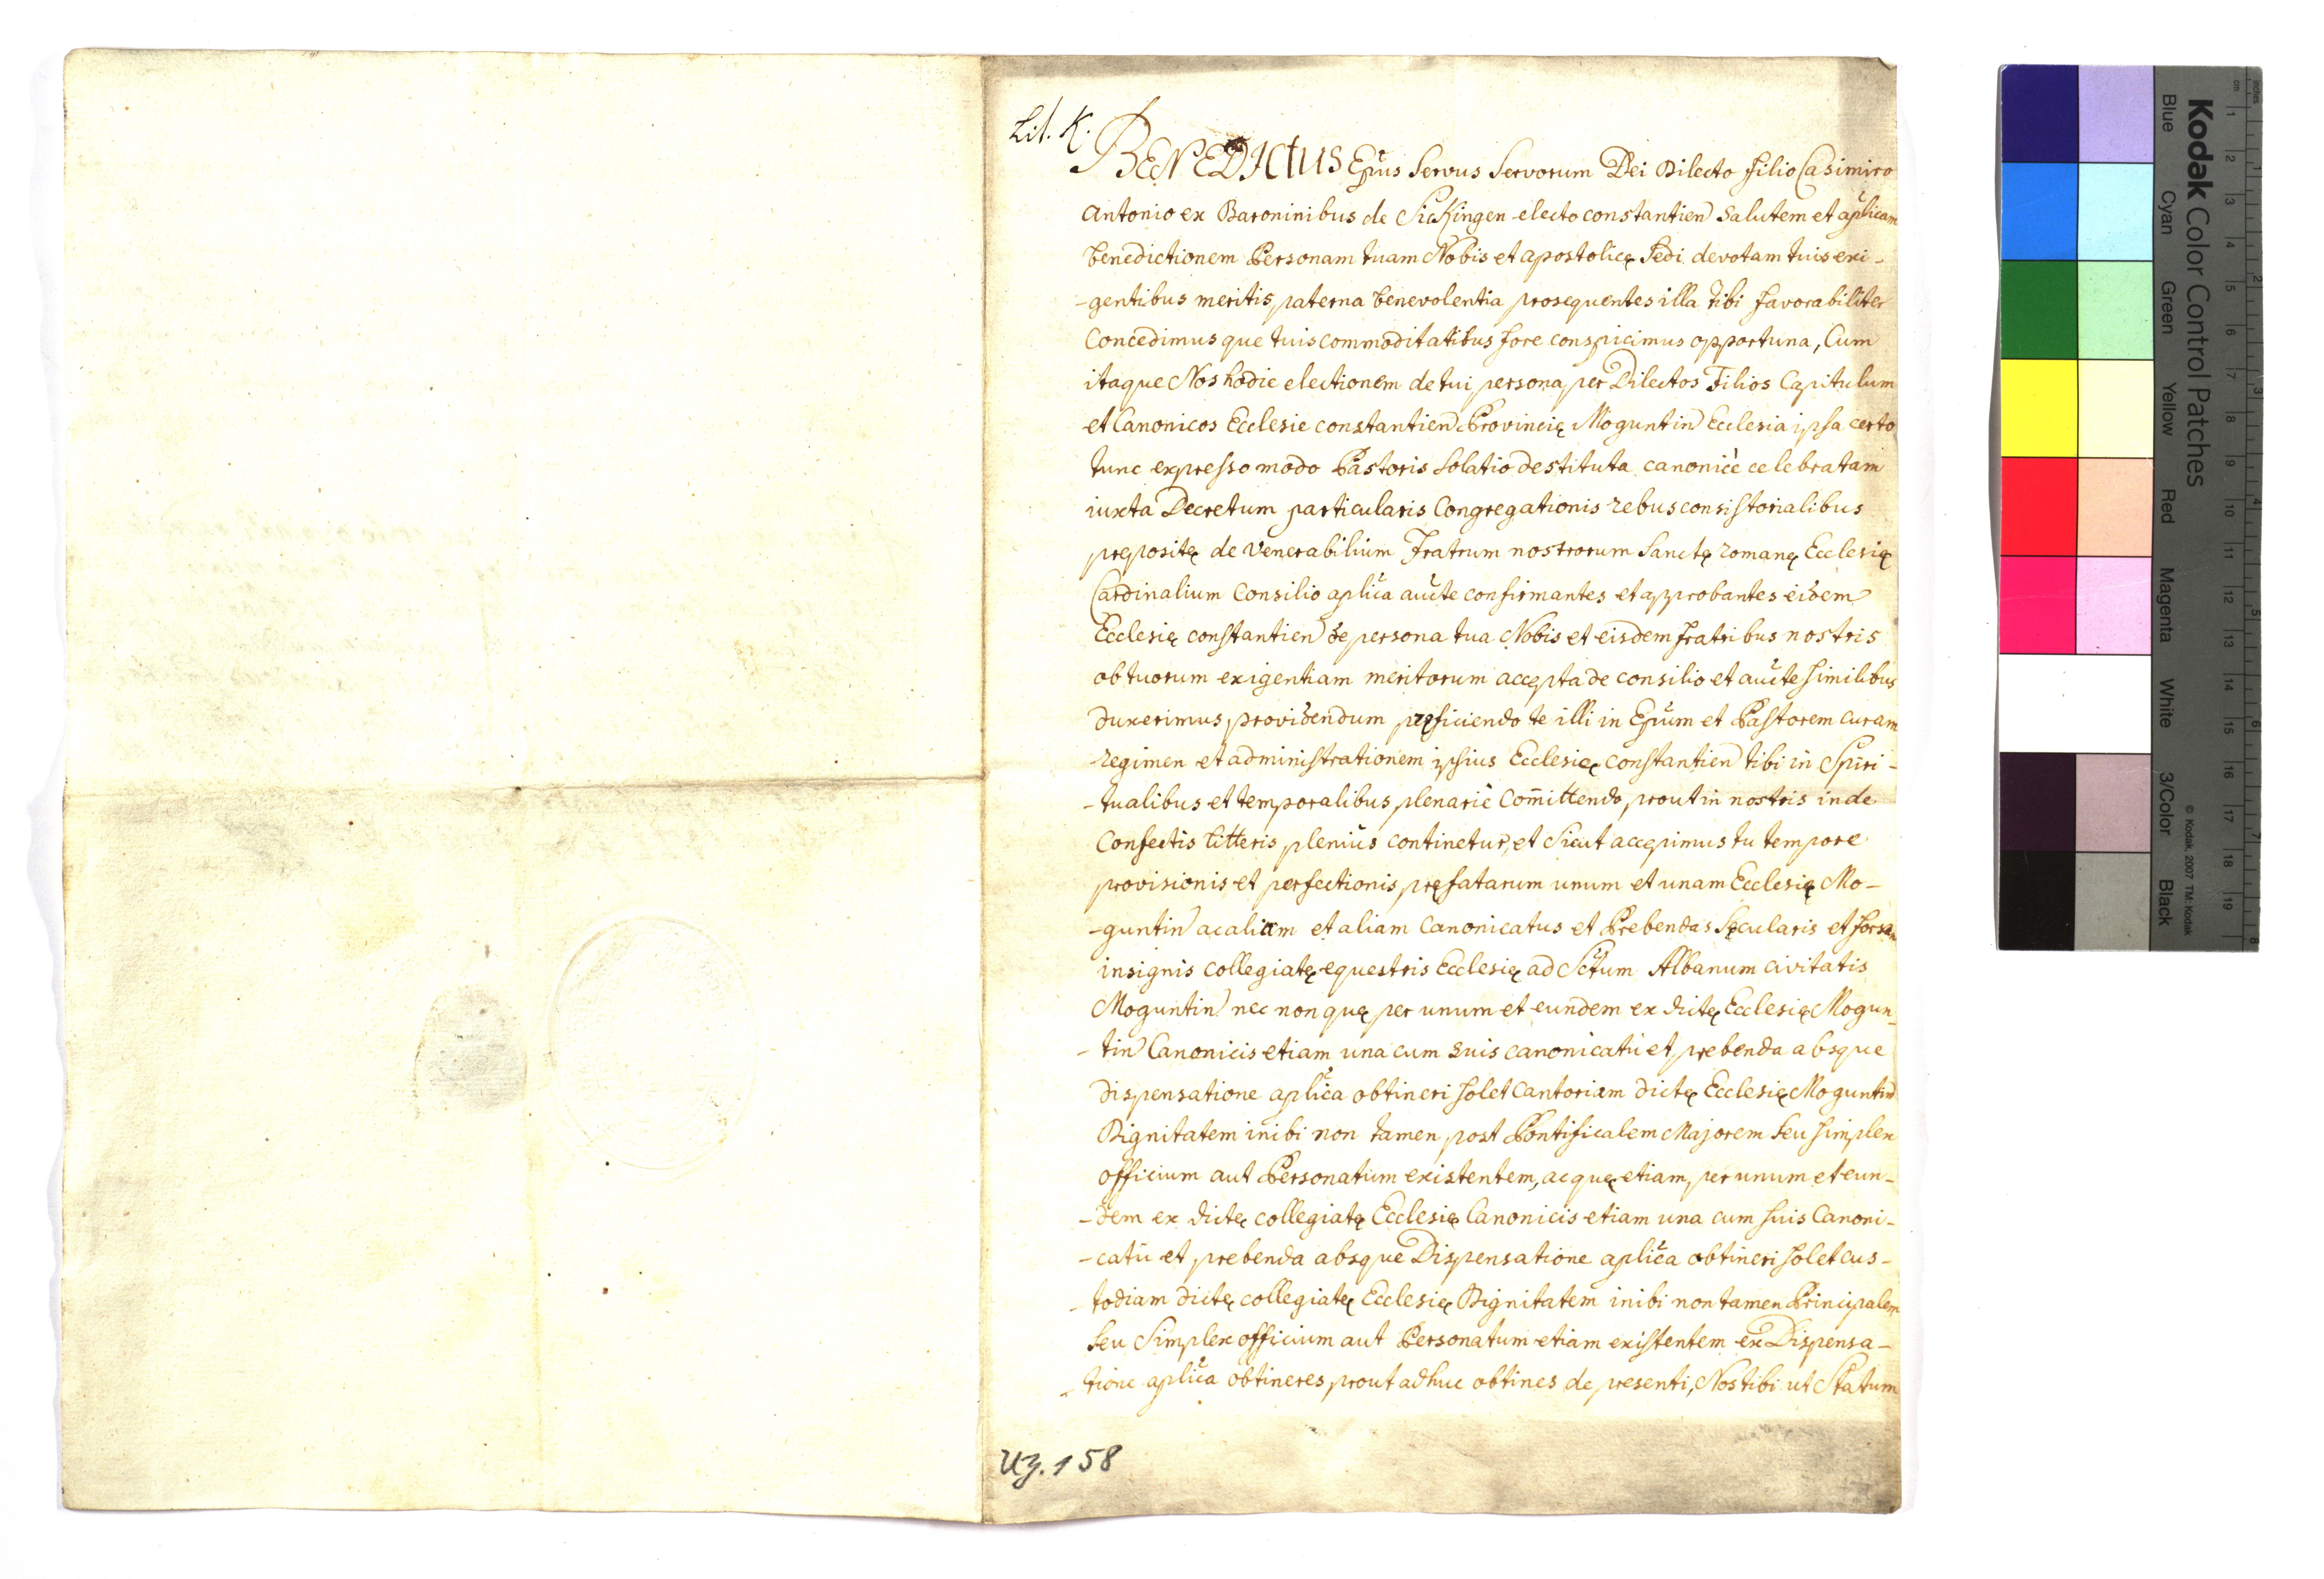 Lit. K.
BENEDICtUS Ep̃us Servus Servorum Dei Dilecto filio Casimiro
Antonio ex Baroninibus de Sickingen electo constantien Salutem et aplicam
benedictionem Personam tuam Nobis et apostolicę Sedi devotam tuis exi-
-gentibus meritis paterna benevolentia prosequentes illa tibi favorabiliter
Concedimus que tuis commoditatibus fore conspicimus opportuna, Cum
itaque Nos hodie electionem de tui persona per Dilectos Filios Capitulum
et Canonicos Ecclesie constantien Provincię Moguntin Ecclesia ipsa certo
tunc expresso modo Pastoris Solatio destituta canonicè celebratam
iuxta Decretum particularis Congregationis rebus consistorialibus
pręposite̜ de Venerabilium Fratrum nostrorum Sanctę romanę Ecclesię
Cardinalium Consilio aplica aucte confirmantes et approbantes eidem
Ecclesię constantien de persona tua Nobis et eisdem fratribus nostris
ob tuorum exigentiam meritorum accepta de consilio et aucte similibus
duxerimus providendum pręficiendo te illi in Ep̃um et Pastorem curam
regimen et administrationem ipsius Ecclesię constantien tibi in Spiri-
-tualibus et temporalibus plenariè com̃ittendo, prout in nostris inde
Confectis litteris plenius continetur, et Sicut accepimus tu tempore
provisionis et perfectionis pręfatarum unum et unam Ecclesię Mo-
-guntin ac alium et aliam Canonicatus et Prebendas Sęcularis et forsan
insignis collegiatę equestris Ecclesię ad Sctum Albanum civitatis
Moguntin nec non quę per unum et eundem ex dictę Ecclesię Mogun-
-tin Canonicis etiam una cum suis canonicatu et prebenda absque
dispensatione aplica obtineri solet Cantoriam dictę Ecclesię Moguntin
Dignitatem inibi non tamen post Pontificalem Majorem Seu simplex
officium aut Personatum existentem, ac quę etiam per unum et eun-
-dem ex dictę collegiatę Ecclesię Canonicis etiam una cum suis Canoni-
-catu et prebenda absque Dispensatione aplica obtineri solet cus-
-todiam dictę collegiatę Ecclesię Dignitatem inibi non tamen Principalem
Seu Simplex officium aut Personatum etiam existentem ex Dispensa-
-tione aplica obtineres, prout adhuc obtines de presenti, Nos tibi ut Statum
UZ. 158
Kodak Color Control Patches
© Kodak, 2007 TM: Kodak
Blue Cyan Green Yellow Red Magenta White 3/Color Black
cm 1 2 3 4 5 6 7 8 9 10 11 12 13 14 15 16 17 18 19
inches 1 2 3 4 5 6 7 8